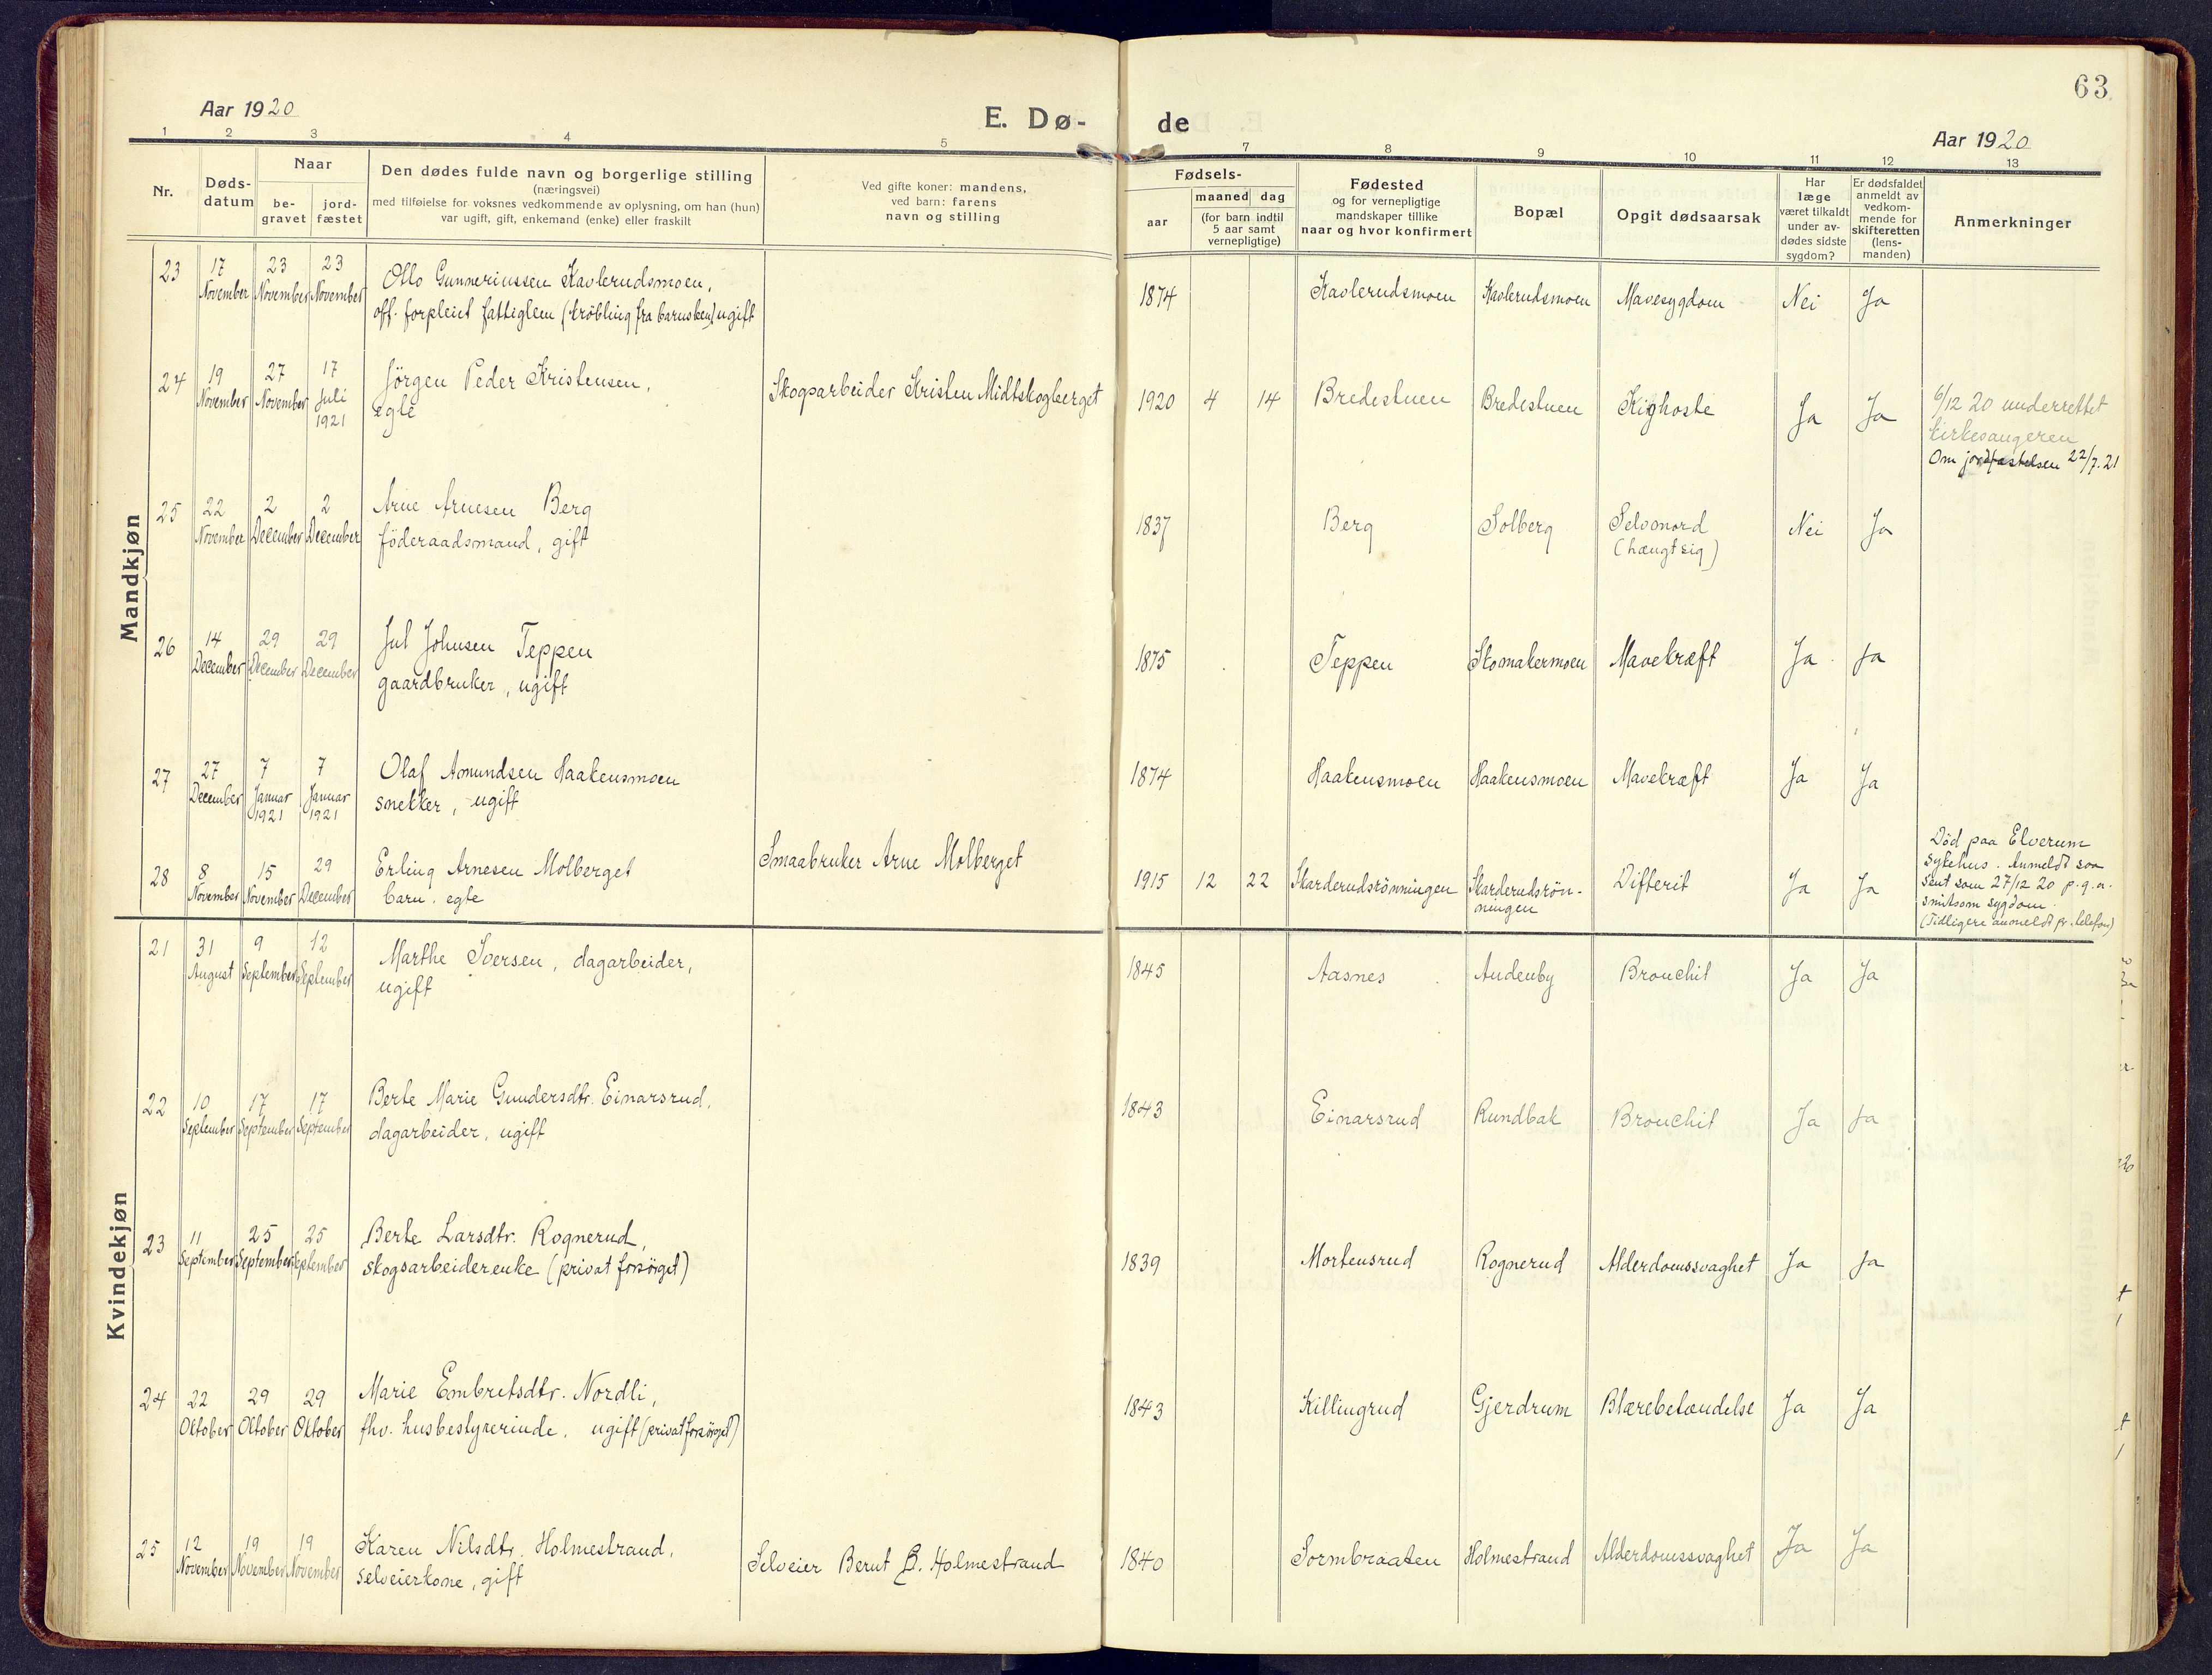 63
Aar 1920
E. Dø-
de
Aar 1920
1 2 3 4 5 7 8 9 10 11 12 13
Nr.
Døds-
datum
Naar
be-
gravet
jord-
fæstet
Den dødes fulde navn og borgerlige stilling
(næringsvei)
med tilføielse for voksnes vedkommende av oplysning, om han (hun)
var ugift, gift, enkemand (enke) eller fraskilt
Ved gifte koner: mandens,
ved barn: farens
navn og stilling
Fødsels-
aar
maaned dag
(for barn indtil
5 aar samt
vernepligtige)
Fødested
og for vernepligtige
mandskaper tillike
naar og hvor konfirmert
Bopæl
Opgit dødsaarsak
Har
læge
været tilkaldt
under av-
dødes sidste
sygdom?
Er dødsfaldet
anmeldt av
vedkom-
mende for
skifteretten
(lens-
manden)
Anmerkninger
Mandkjøn
23 17 November 23 November 23 November
Otto Gunneriussen Kavlerudsmoen,
off. forpleiet fattiglem (krøbling fra barnsben) ugift
1874 Kavlerudsmoen Kavlerudsmoen Mavesygdom Nei Ja
24 19 November 27 November 17 Juli 1921
Jörgen Peder Kristensen,
egte
Skogsarbeider Kristen Midtskogberget
1920 4 14 Bredestuen Bredestuen Kighoste Ja Ja
6/12 20 underrettet
kirkesangeren
Om jordfæstelsen 22/7. 21
25 22 November 2 December 2 December
Arne Arnesen Berg
föderaadsmand, gift
1837 Berg Solberg Selvmord
(hængt sig)
Nei Ja
26 14 December 29 December 29 December
Jul Johnsen Teppen
gaardbruker, ugift
1875 Teppen Skomakermoen Mavekræft Ja Ja
27 27 December 7 Januar 1921 7 Januar 1921
Olaf Amundsen Haakensmoen
snekker, ugift
1874 Haakensmoen Haakensmoen Mavekræft Ja Ja
28 8 November 15 November 29 December
Erling Arnesen Molberget
barn, egte
Smaabruker Arne Molberget
1915 12 22 Skarderudsrönningen Skarderudsrön-
ningen
Difterit Ja Ja
Död paa Elverum
sykehus. Anmeldt saa
sent som 27/12 20 p.g.a.
smitsom sygdom.
(Tidligere anmeldt pr. telefon)
Kvindekjøn
21 31 August 9 September 12 September
Marthe Iversen, dagarbeider,
ugift
1845 Aasnes Audenby Bronchit Ja Ja
22 10 September 17 September 17 September
Berte Marie Gundersdtr. Einarsrud,
dagarbeider, ugift
1843 Einarsrud Rundbak Bronchit Ja Ja
23 11 September 25 September 25 September
Berte Larsdtr. Rognerud,
skogsarbeiderenke (privat forsörget)
1839 Mortensrud Rognerud Alderdomssvaghet Ja Ja
24 22 Oktober 29 Oktober 29 Oktober
Marie Embretsdtr. Nordli,
fhv. husbestyrerinde, ugift (privat forsörget)
1843 Killingrud Gjerdrum Blærebetændelse Ja Ja
25 12 November 19 November 19 November
Karen Nilsdtr. Holmestrand,
selveierkone, gift
Selveier Bernt B. Holmestrand
1840 Sormbraaten Holmestrand Alderdomssvaghet Ja Ja